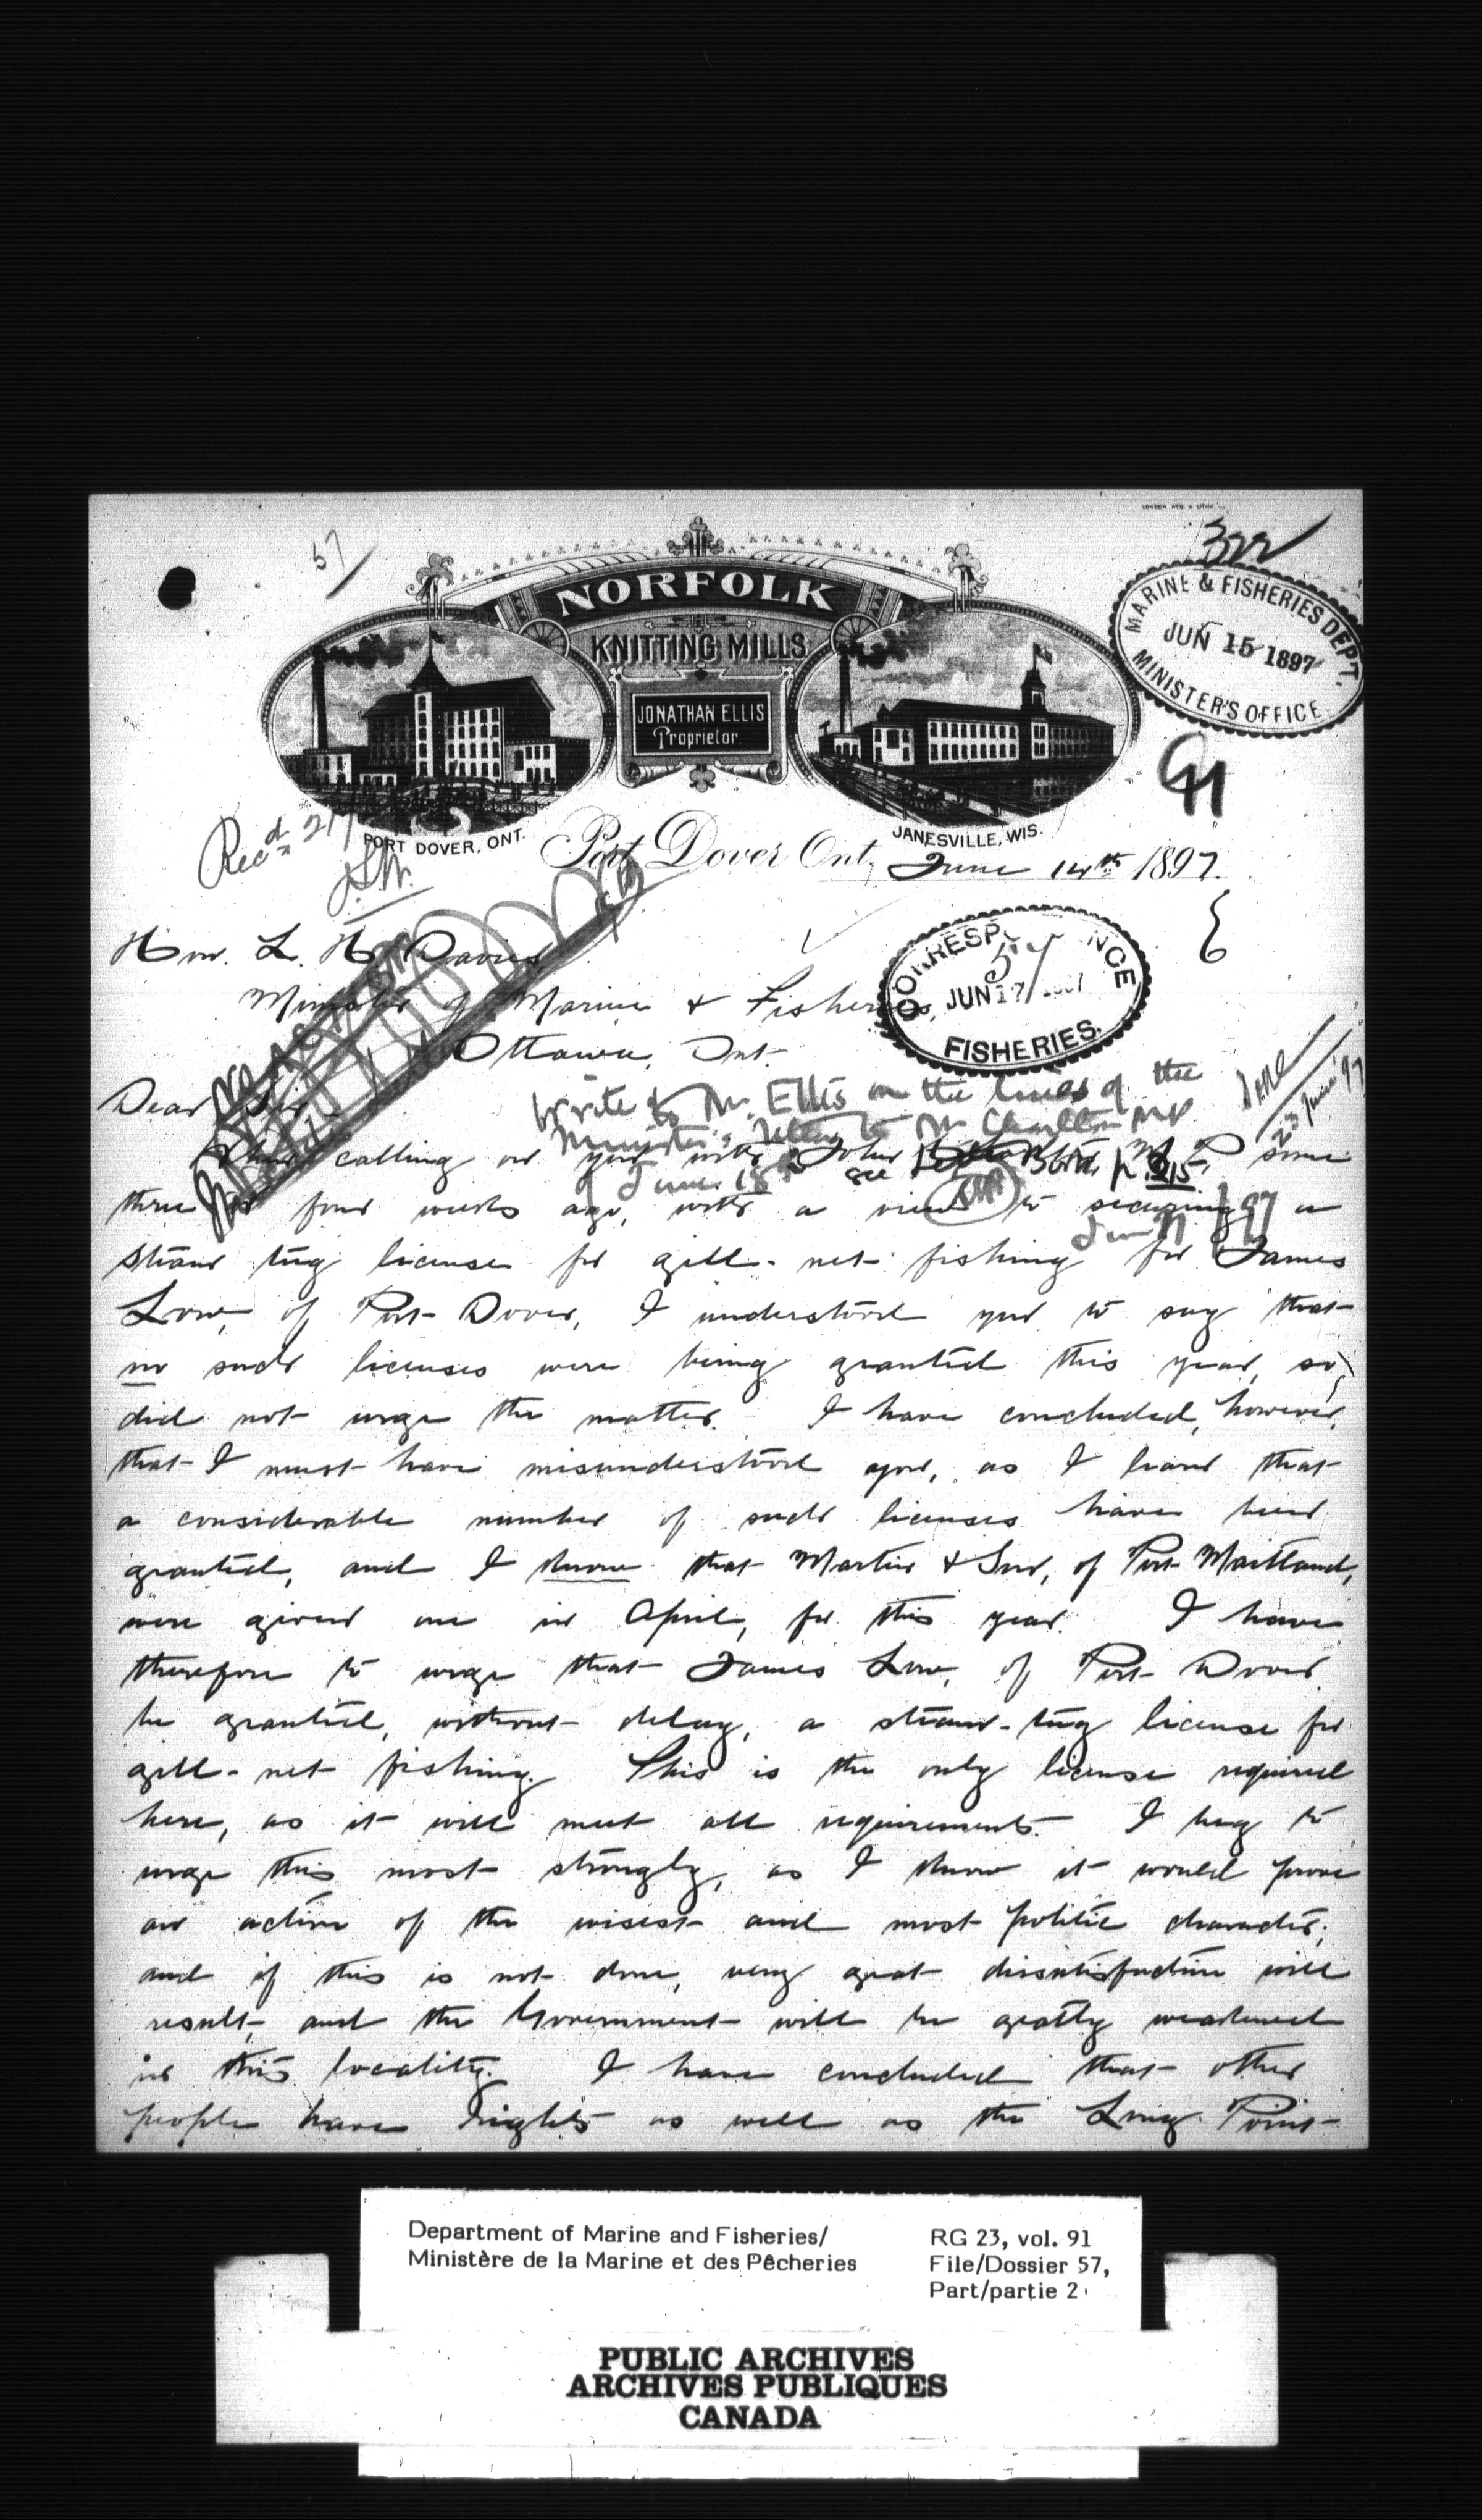 57
322
NORFOLK
KNITTING MILLS
JONATHAN ELLIS
Proprietor.
MARINE & FISHERIES DEPT.
JUN 15 1897
MINISTER'S OFFICE
PORT DOVER, ONT.
JANESVILLE, WIS.
Recd 21/
Port Dover Ont, June 14th 1897.
Hon. L. H. Davies
Minister of Marine & Fisheries,
Ottawa, Ont.
CORRESPONDENCE
57
JUN 17 1897
FISHERIES.
Dear Sir -
Write to Mr. Ellis on the lines of the
Minister's letter to Mr Charlton MP
June 18th see
23 June '97
When calling on you with John Charlton M. P. some
three or four weeks ago, with a view to securing a
steam tug license for gill-net fishing for James
Low, of Port Dover, I understood you to say that
no such licenses were being granted this year, so
did not urge the matter. I have concluded, however,
that I must have misunderstood you, as I learn that
a considerable number of such licenses have been
granted, and I know that Martin & Son, of Port Maitland,
were given one in April, for this year. I have
therefore to urge that James Low, of Port Dover
be granted, without delay, a steam-tug license for
gill-net fishing. This is the only license required
here, as it will meet all requirements. I beg to
urge this most strongly, as I know it would prove
an action of the wisest and most politic character;
and if this is not done, very great dissatisfaction will
result, and the Government will be greatly weakened
in this locality. I have concluded that other
people have rights as well as the Long Point
Department of Marine and Fisheries/
Ministère de la Marine et des Pêcheries
RG 23, vol. 91
File/Dossier 57,
Part/partie 2
PUBLIC ARCHIVES
ARCHIVES PUBLIQUES
CANADA